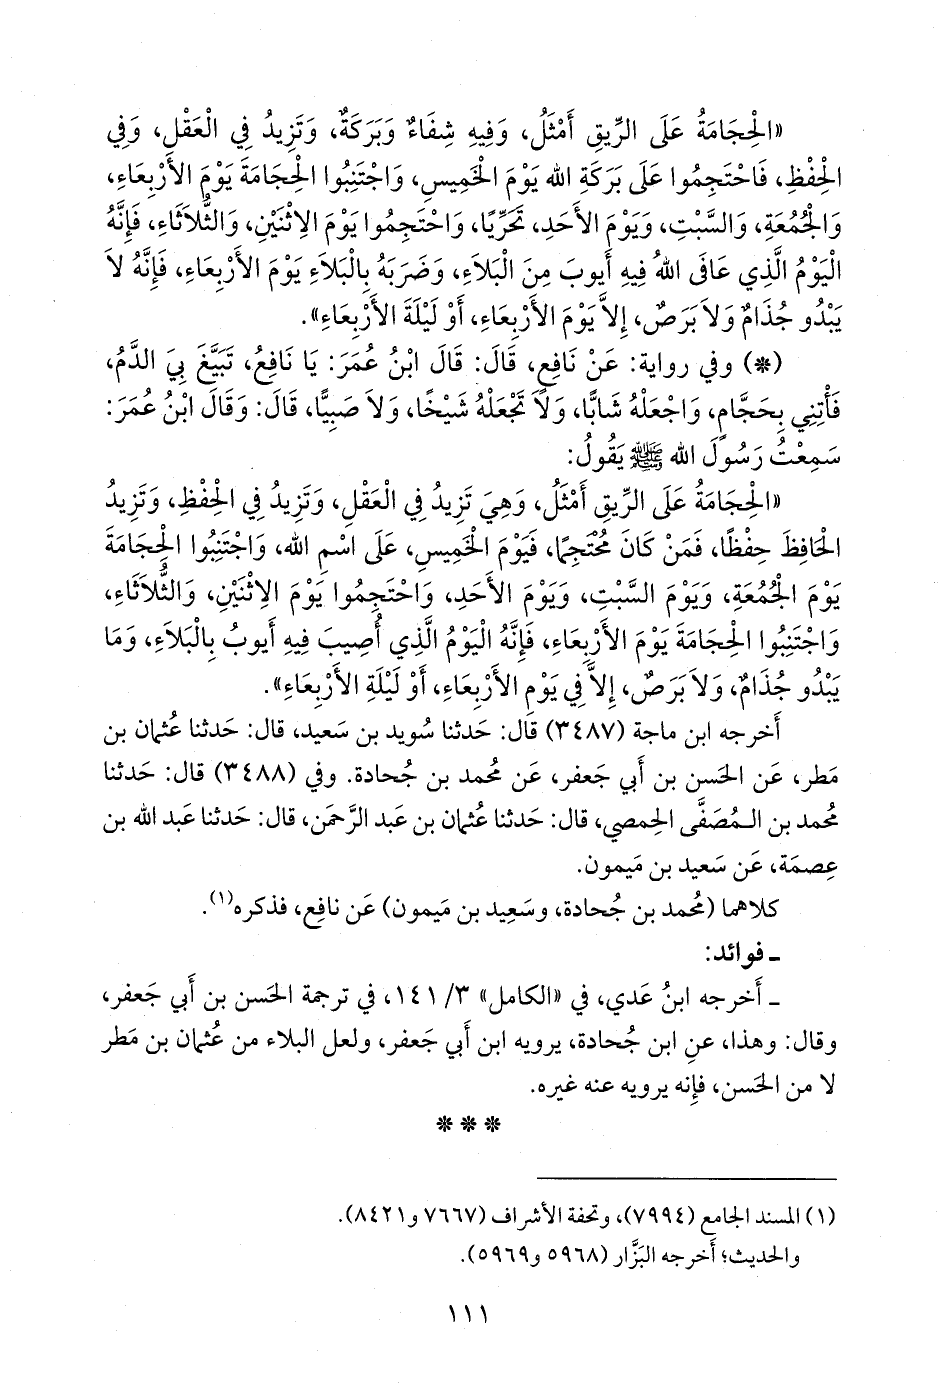 «الْحِجَامَةُ عَلَى الرِّيقِ أَمْثَلُ، وَفِيهِ شِفَاءٌ وَبَرَكَةٌ، وَتَزِيدُ فِي الْعَقْلِ، وَفِي
الْحِفْظِ، فَاحْتَجِمُوا عَلَى بَرَكَةِ اللهِ يَوْمَ الْخَمِيسِ، وَاجْتَنِبُوا الْحِجَامَةَ يَوْمَ الأَرْبِعَاءِ،
وَالْجُمُعَةِ، وَالسَّبْتِ، وَيَوْمَ الأَحَدِ، تَحَرِّيًا، وَاحْتَجِمُوا يَوْمَ الِاثْنَيْنِ، وَالثُّلَاثَاءِ، فَإِنَّهُ
الْيَوْمُ الَّذِي عَافَى اللهُ فِيهِ أَيوبَ مِنَ الْبَلَاءِ، وَضَرَبَهُ بِالْبَلَاءِ يَوْمَ الأَرْبِعَاءِ، فَإِنَّهُ لَا
يَبْدُو جُذَامٌ وَلَا بَرَصٌ، إِلاَّ يَوْمَ الأَرْبِعَاءِ، أَوْ لَيْلَةَ الأَرْبِعَاءِ».
(*) وفي رواية: عَنْ نَافِعٍ، قَالَ: قَالَ ابْنُ عُمَرَ: يَا نَافِعُ، تَبَيَّغَ بِيَ الدَّمُ،
فَأْتِنِي بِحَجَّامٍ، وَاجْعَلْهُ شَابًّا، وَلَا تَجْعَلْهُ شَيْخًا، وَلَا صَبِيًّا، قَالَ: وَقَالَ ابْنُ عُمَرَ:
سَمِعْتُ رَسُولَ الله ﷺ يَقُولُ:
«الْحِجَامَةُ عَلَى الرِّيقِ أَمْثَلُ، وَهِيَ تَزِيدُ فِي الْعَقْلِ، وَتَزِيدُ فِي الْحِفْظِ، وَتَزِيدُ
الْحَافِظَ حِفْظًا، فَمَنْ كَانَ مُحْتَجِمًا، فَيَوْمَ الْخَمِيسِ، عَلَى اسْمِ اللهِ، وَاجْتَنِبُوا الْحِجَامَةَ
يَوْمَ الْجُمُعَةِ، وَيَوْمَ السَّبْتِ، وَيَوْمَ الأَحَدِ، وَاحْتَجِمُوا يَوْمَ الِاثْنَيْنِ، وَالثُّلَاثَاءِ،
وَاجْتَنِبُوا الْحِجَامَةَ يَوْمَ الأَرْبِعَاءِ، فَإِنَّهُ الْيَوْمُ الَّذِي أُصِيبَ فِيهِ أَيوبُ بِالْبَلَاءِ، وَمَا
يَبْدُو جُذَامٌ، وَلَا بَرَصٌ، إِلاَّ فِي يَوْمِ الأَرْبِعَاءِ، أَوْ لَيْلَةِ الأَرْبِعَاءِ».
أَخرجه ابن ماجة (٣٤٨٧) قَال: حَدثنا سُويد بن سَعيد، قال: حَدثنا عُثمان بن
مَطر، عَن الحَسن بن أَبي جَعفر، عَن مُحمد بن جُحادة. وفي (٣٤٨٨) قال: حَدثنا
مُحمد بن الـمُصَفَّى الحِمصي، قال: حَدثنا عُثمان بن عَبد الرَّحمَن، قال: حَدثنا عَبد الله بن
عِصمَة، عَن سَعيد بن مَيمون.
كلاهما (مُحمد بن جُحادة، وسَعيد بن مَيمون) عَن نافِع، فذكره(١).
ـ فوائد:
ـ أَخرجه ابنُ عَدي، في «الكامل» ٣/ ١٤١، في ترجمة الحَسن بن أَبي جَعفر،
وقال: وهذا، عنِ ابن جُحادة، يرويه ابن أَبي جَعفر، ولعل البلاء من عُثمان بن مَطر
لا من الحَسن، فإِنه يرويه عنه غيره.
* * *
(١) المسند الجامع (٧٩٩٤)، وتحفة الأشراف (٧٦٦٧ و٨٤٢١).
والحديث؛ أَخرجه البَزَّار (٥٩٦٨ و٥٩٦٩).
١١١